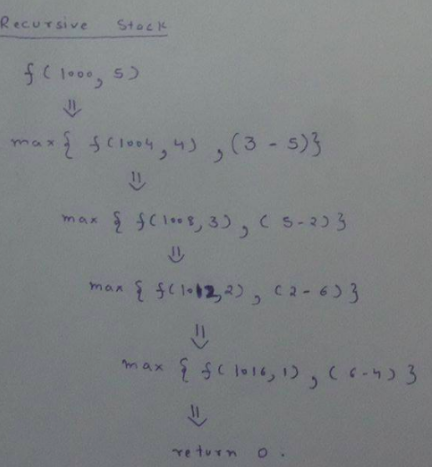 Recursive Stack
f(1000, 5)
⇓
max{ f(1004, 4) , (3 - 5)}
⇓
max { f(1008, 3) , ( 5-2) }
⇓
max { f(1012, 2) , (2 - 6) }
⇓
max { f(1016, 1) , (6-4) }
⇓
return 0.